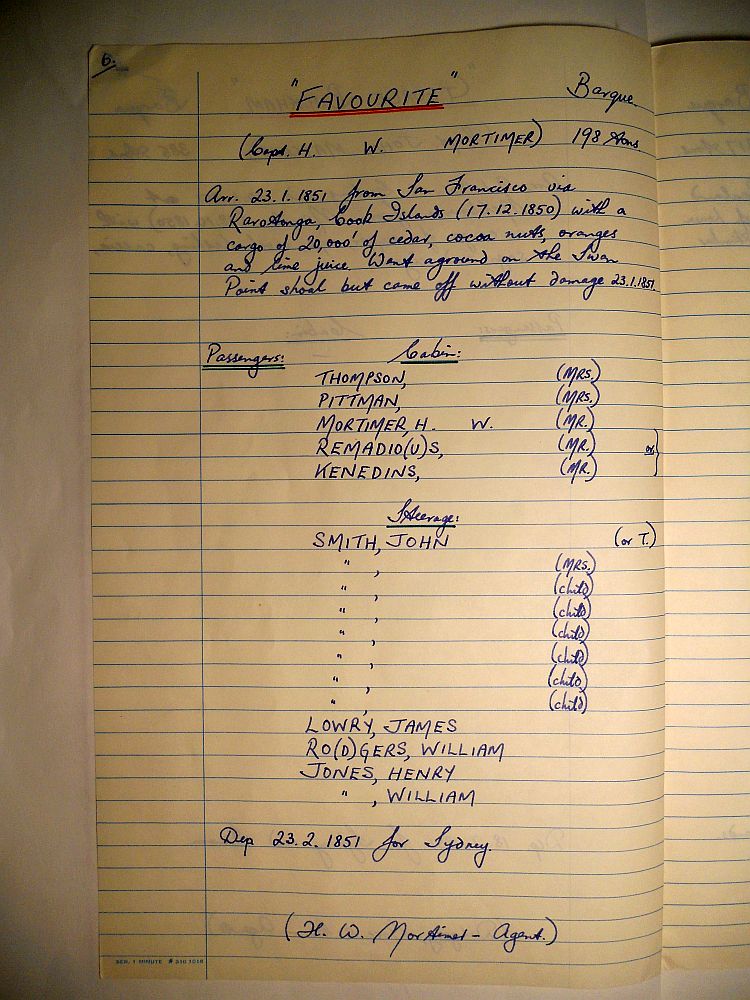 6.
"FAVOURITE" Barque
(Capt. H. W. MORTIMER) 198 tons
Arr. 23.1.1851 from San Francisco via
Rarotonga, Cook Islands (17.12.1850) with a
cargo of 20,000' of cedar, cocoa nuts, oranges
and lime juice. Went aground on the Swan
Point shoal but came off without damage 23.1.1851.
Passengers: Cabin:
THOMPSON, (MRS.)
PITTMAN, (MRS.)
MORTIMER, H. W. (MR.)
REMADIO(U)S, (MR.) or }
KENEDINS, (MR.)
Steerage:
SMITH, JOHN (or T.)
" , (MRS.)
" , (child)
" , (child)
" , (child)
" , (child)
" , (child)
" , (child)
LOWRY, JAMES
RO(D)GERS, WILLIAM
JONES, HENRY
" , WILLIAM
Dep 23.2.1851 for Sydney.
(H. W. Mortimer - Agent.)
SER. 1 MINUTE # 316 1016